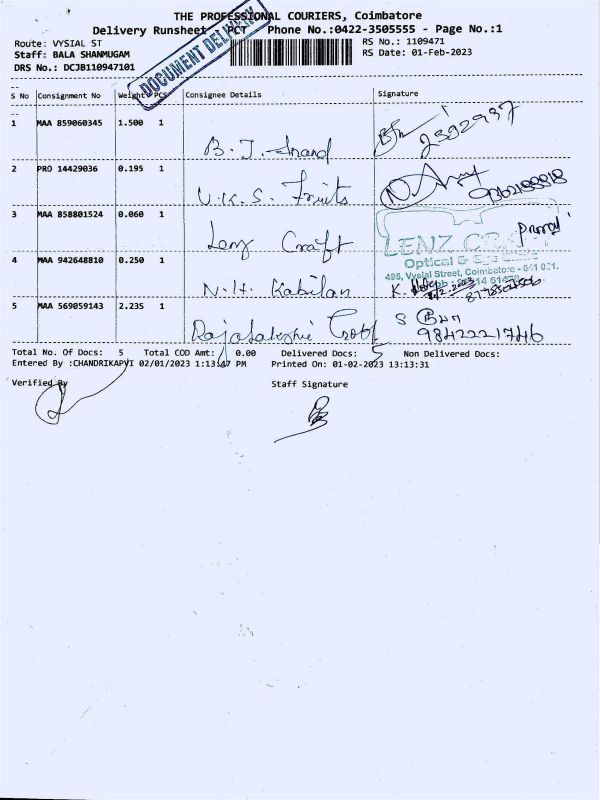 THE PROFESSIONAL COURIERS, Coimbatore
Delivery Runsheet PCT Phone No.:0422-3505555 - Page No.:1
DOCUMENT DELIVERY
Route: VYSIAL ST
RS No.: 1109471
Staff: BALA SHANMUGAM
RS Date: 01-Feb-2023
DRS No.: DCJB110947101
S No Consignment No Weight PCS Consignee Details Signature
1 MAA 859060345 1.500 1 B. J. Anand 2592937
2 PRO 14429036 0.195 1 V.K.S. Fruits
3 MAA 858801524 0.060 1 Lenz Craft
LENZ
Optical &
495, Vysial Street, Coimbatore - 641 001.
4 MAA 942648810 0.250 1 N.H. Kabilan K.
5 MAA 569059143 2.235 1 S 9842221746
Total No. Of Docs: 5 Total COD Amt: 0.00 Delivered Docs: 5 Non Delivered Docs:
Entered By :CHANDRIKAPVI 02/01/2023 1:13:47 PM Printed On: 01-02-2023 13:13:31
Verified By Staff Signature